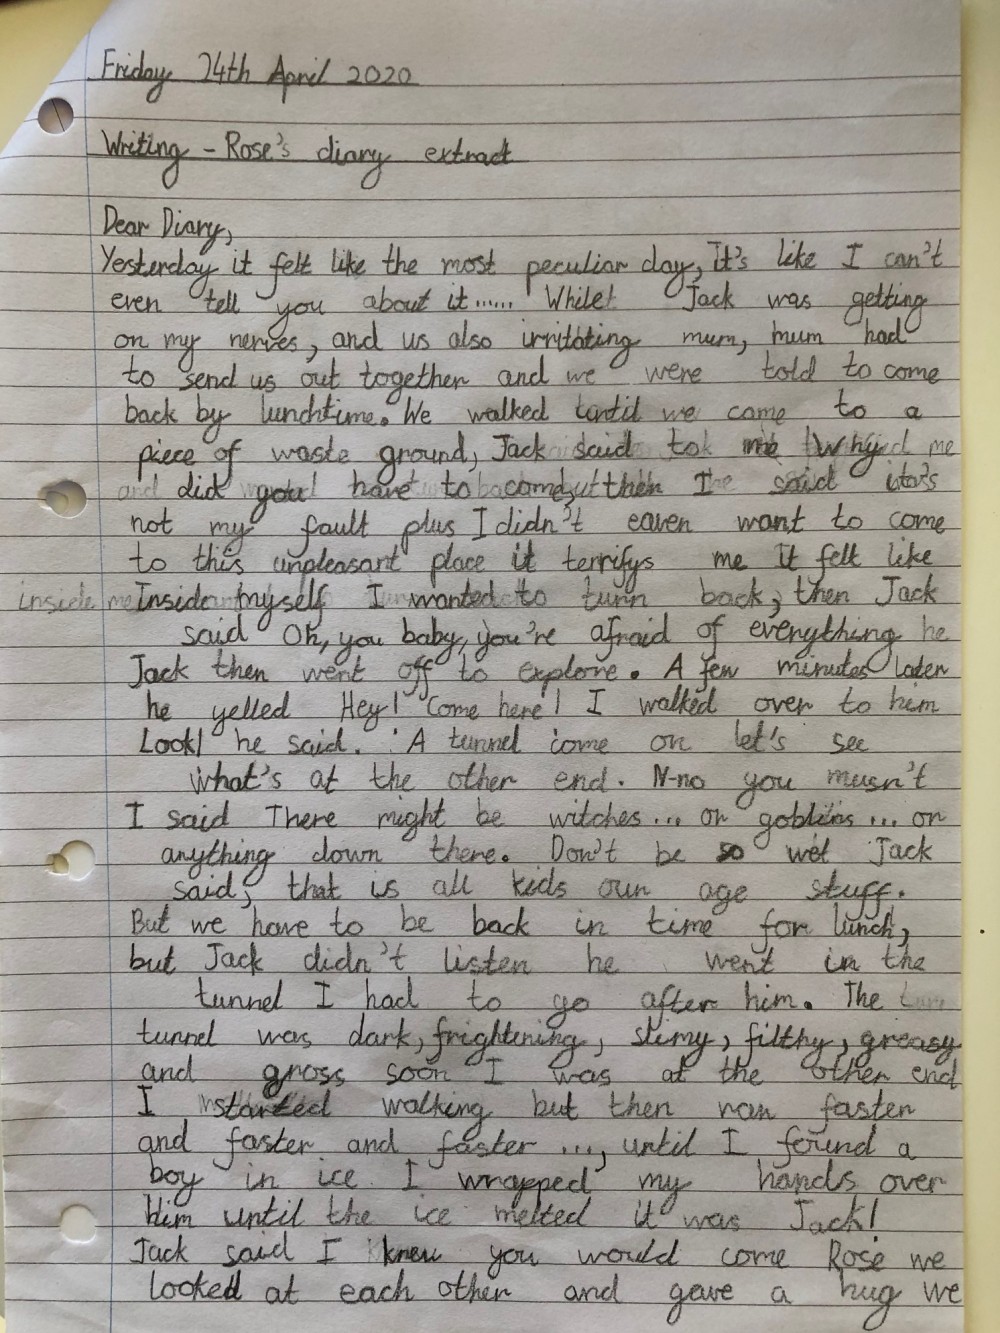 Friday 24th April 2020
Writing - Rose's diary extract
Dear Diary,
Yesterday it felt like the most peculiar day, it's like I can't
even tell you about it...... Whilst Jack was getting
on my nerves, and us also irritating mum, mum had
to send us out together and we were told to come
back by lunchtime. We walked until we came to a
piece of waste ground, Jack said to me Why
did you have to come, then I said it's
not my fault plus I didn't eaven want to come
to this unpleasant place it terrifys me It felt like
Inside myself I wanted to turn back, then Jack
said Oh, you baby, you're afraid of everything he
Jack then went off to explore. A few minutes later
he yelled Hey! Come here! I walked over to him
Look! he said. A tunnel come on let's see
what's at the other end. N-no you musn't
I said There might be witches... or goblins... or
anything down there. Don't be so wet Jack
said, that is all kids our age stuff.
But we have to be back in time for lunch,
but Jack didn't listen he went in the
tunnel I had to go after him. The
tunnel was dark, frightening, slimy, filthy, greasy
and gross soon I was at the other end
I started walking but then ran faster
and faster and faster ..., until I found a
boy in ice I wrapped my hands over
him until the ice melted it was Jack!
Jack said I knew you would come Rose we
looked at each other and gave a hug we